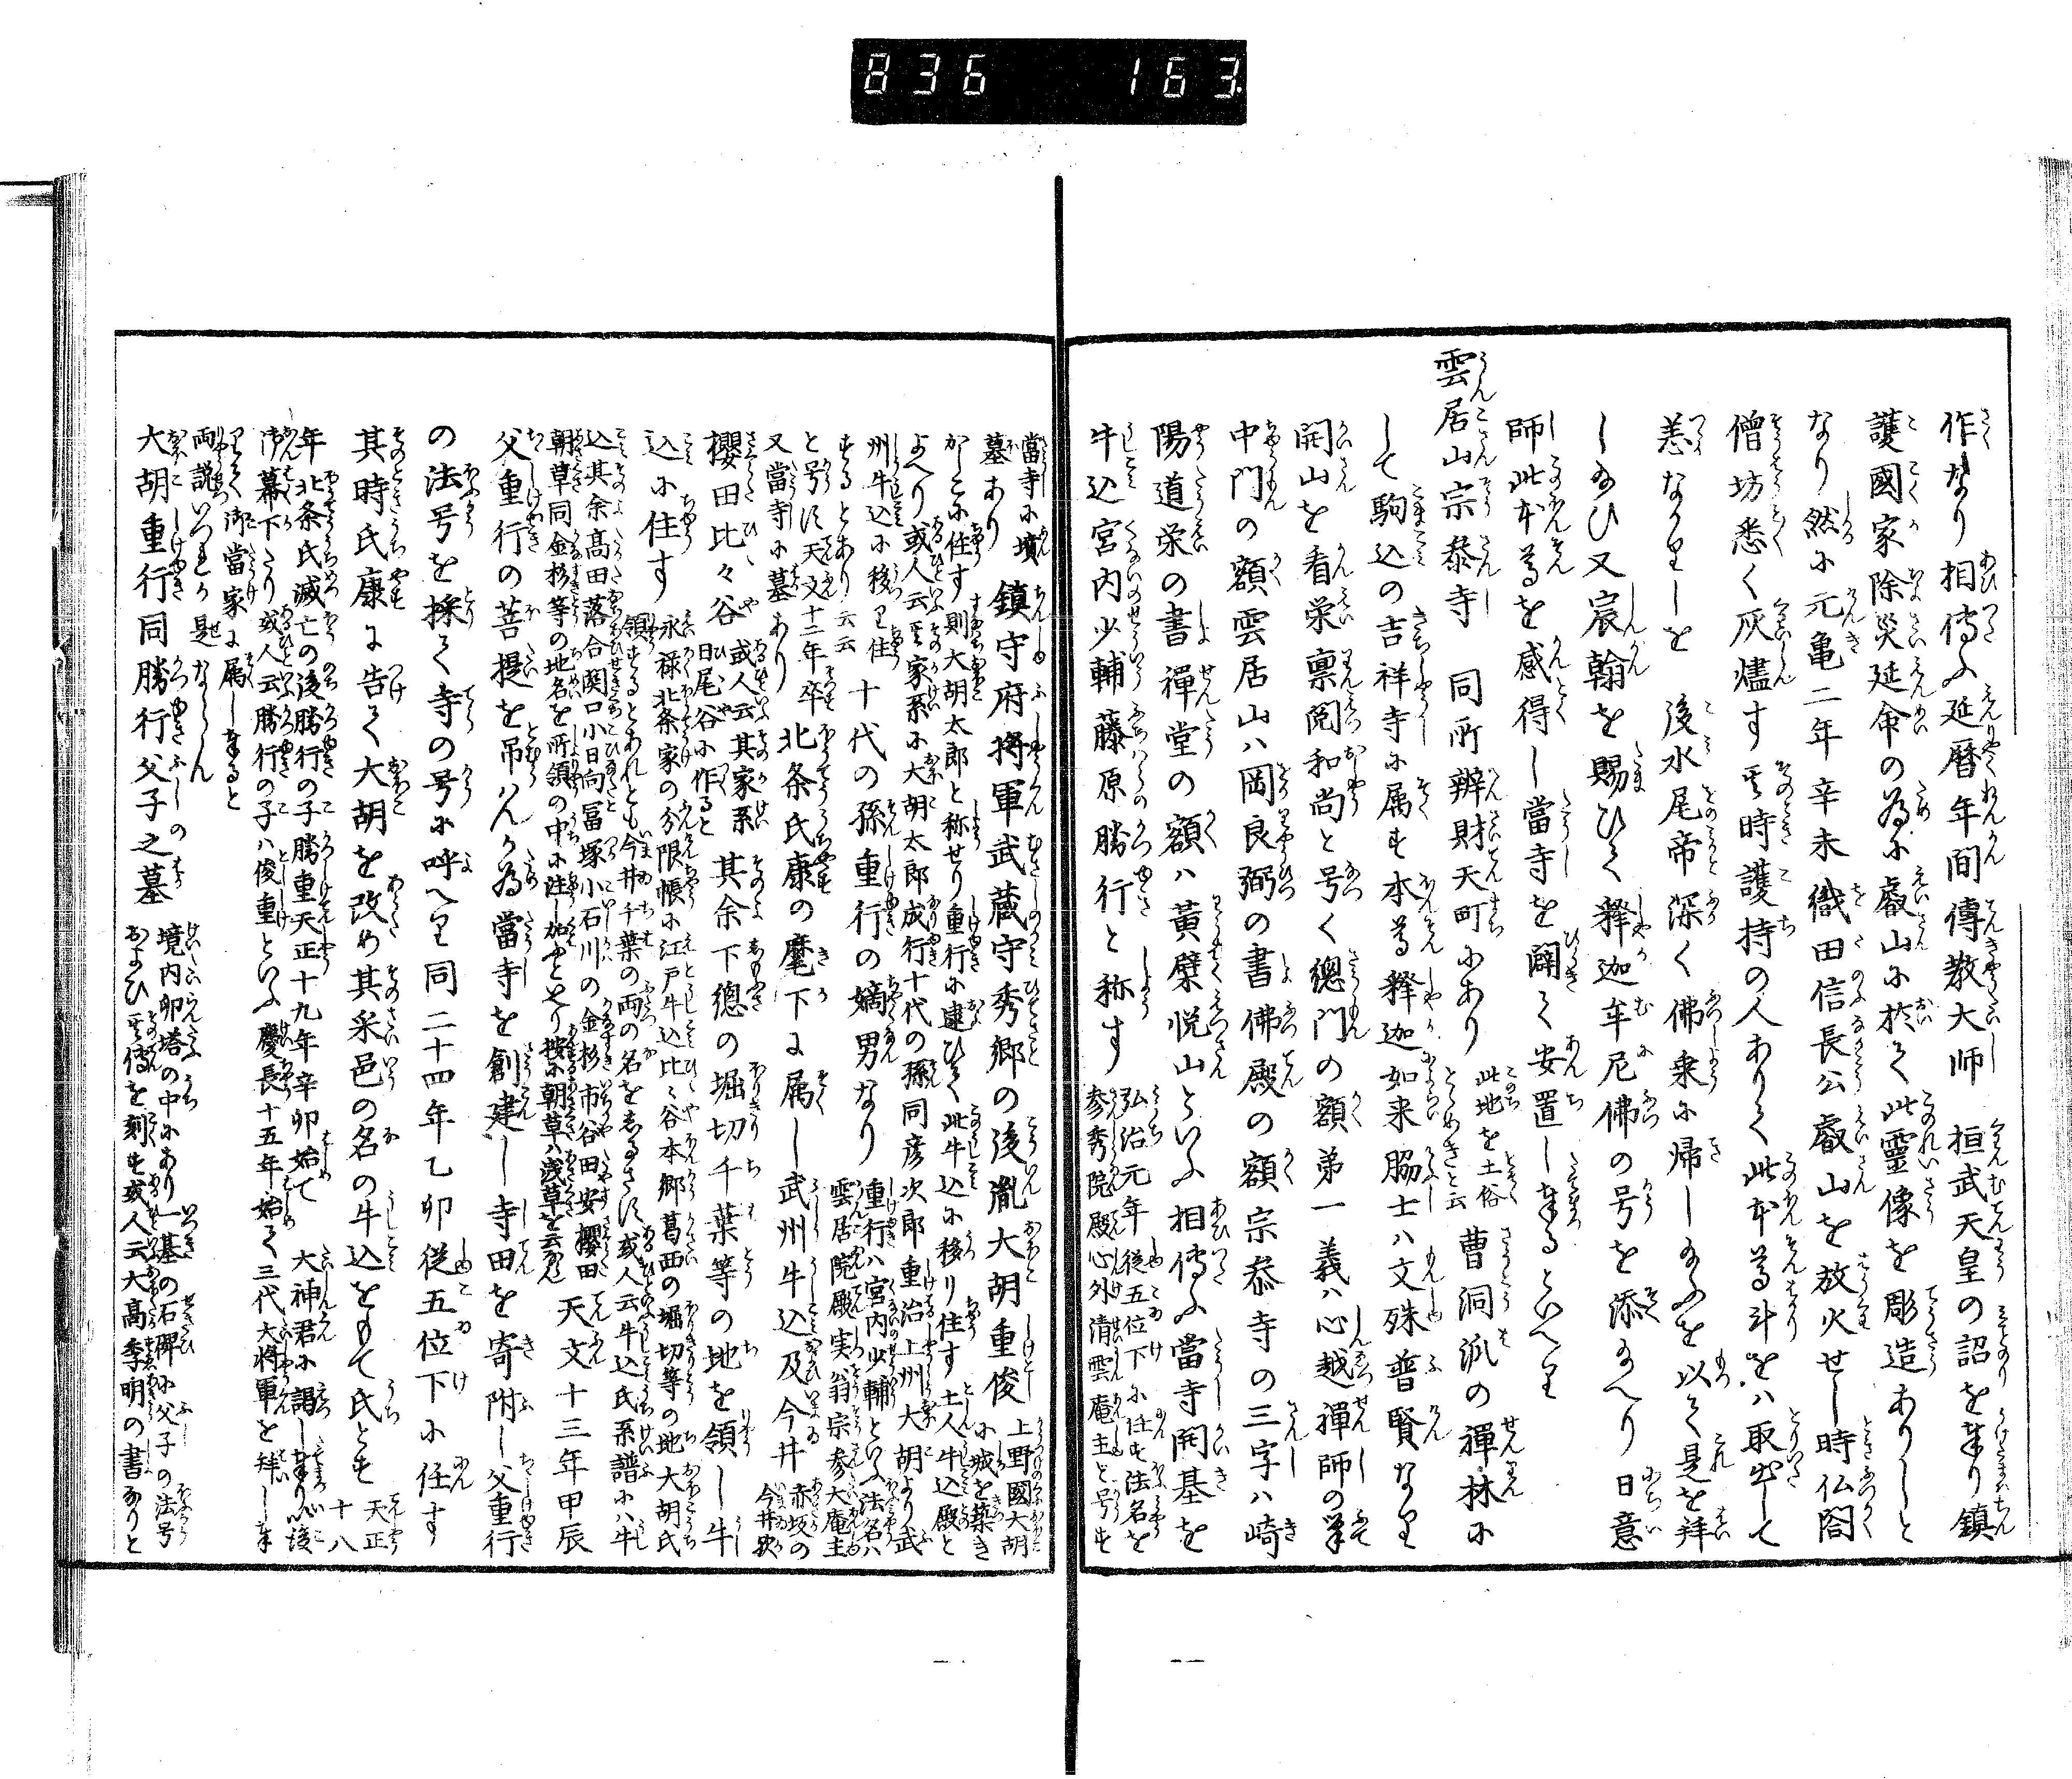 836 163
作なり相傳ふ延暦年間傳教大師 桓武天皇の詔を奉り鎮
護國家除災延命の為に叡山に於て此靈像を彫造ありしと
なり然に元亀二年辛未織田信長公叡山を放火せし時仏閣
僧坊悉く灰燼す其時護持の人ありて此本尊斗をハ取出して
恙なかりしを 後水尾帝深く佛乗に帰し給ふを以て是を拝
し給ひ又宸翰を賜ひて釋迦牟尼佛の号を添給へり日意
師此本尊を感得し當寺を闢て安置し奉るといへり
雲居山宗参寺 同所辨財天町にあり 此地を土俗とめきと云 曹洞派の禅林に
して駒込の吉祥寺に属す本尊釋迦如来脇士ハ文殊普賢なり
開山を看栄禀閲和尚と号く總門の額第一義ハ心越禅師の筆
中門の額雲居山ハ岡良弼の書佛殿の額宗参寺の三字ハ崎
陽道栄の書禅堂の額ハ黄檗悦山といふ相傳ふ當寺開基を
牛込宮内少輔藤原勝行と称す 弘治元年従五位下に任す法名を
参秀院殿心外清雲庵主と号す
當寺に墳
墓あり 鎮守府将軍武蔵守秀郷の後胤大胡重俊 上野國大胡
に城を築き
かしこに住す則大胡太郎と称せり重行に逮ひて此牛込に移り住す土人牛込殿と
よへり或人云其家系に大胡太郎成行十代の孫同彦次郎重治上州大胡より武
州牛込に移り住
するとあり云云 十代の孫重行の嫡男なり 重行ハ宮内少輔といふ法名ハ
雲居院殿実翁宗参大庵主
と号す天文十二年卒
又當寺に墓あり 北条氏康の麾下に属し武州牛込及今井 赤坂の
今井歟
櫻田比々谷 或人云其家系
日尾谷に作ると 其余下總の堀切千葉等の地を領し牛
込に住す 永禄北条家の分限帳に江戸牛込比々谷本郷葛西の堀切等の地大胡氏
領するとあれとも今井千葉の両の名をしるさす或人云牛込氏系譜にハ牛
込其余高田落合関口小日向冨塚小石川の金杉市谷田安櫻田
朝草同金杉等の地名を所領の中に注し加ゆと云り按に朝草ハ浅草を云なるへし 天文十三年甲辰
父重行の菩提を吊ハんか為當寺を創建し寺田を寄附し父重行
の法号を採て寺の号に呼へり同二十四年乙卯従五位下に任す
其時氏康に告て大胡を改め其采邑の名の牛込をもて氏とす 天正
十八
年北条氏滅亡の後勝行の子勝重天正十九年辛卯始て 大神君に謁し奉り以後
御幕下たり或人云勝行の子ハ俊重といふ慶長十五年始て三代大将軍を拝し奉
りて御當家に属し奉ると
両説いつれか是ならん
大胡重行同勝行父子之墓 境内卵塔の中にあり一基の石碑に父子の法号
およひ其傳を刻す或人云大高季明の書なりと